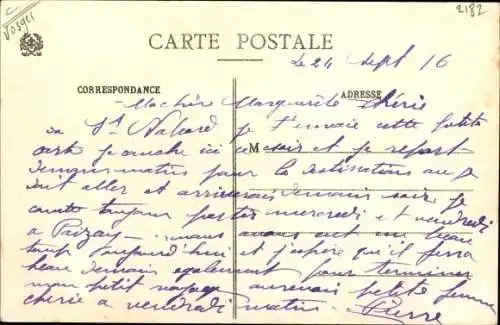 Vosges
2182
CARTE POSTALE
Le 24 Sept 16
CORRESPONDANCE
ADRESSE
Ma chère Marguerite chérie
St Nabord je t'envoie cette petite
carte je couche ici ce soir et je repart
M
demain matin pour la destination ou je
doit aller et arriverais demain soir je
compte toujour partir mercredi et vendredi
a nous avons eut un beau
temp aujourd'hui et j'espère qu'il fera
beau demain egalement pour terminer
mon petit voyage aurevoir petite femme
cherie a vendredi matin Pierre